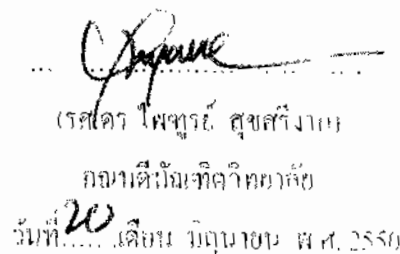 (รศ.ดร. ไพฑูรย์ สุขศรีงาม)
คณบดีบัณฑิตวิทยาลัย
วันที่ 20 เดือน มิถุนายน พ.ศ. 2550